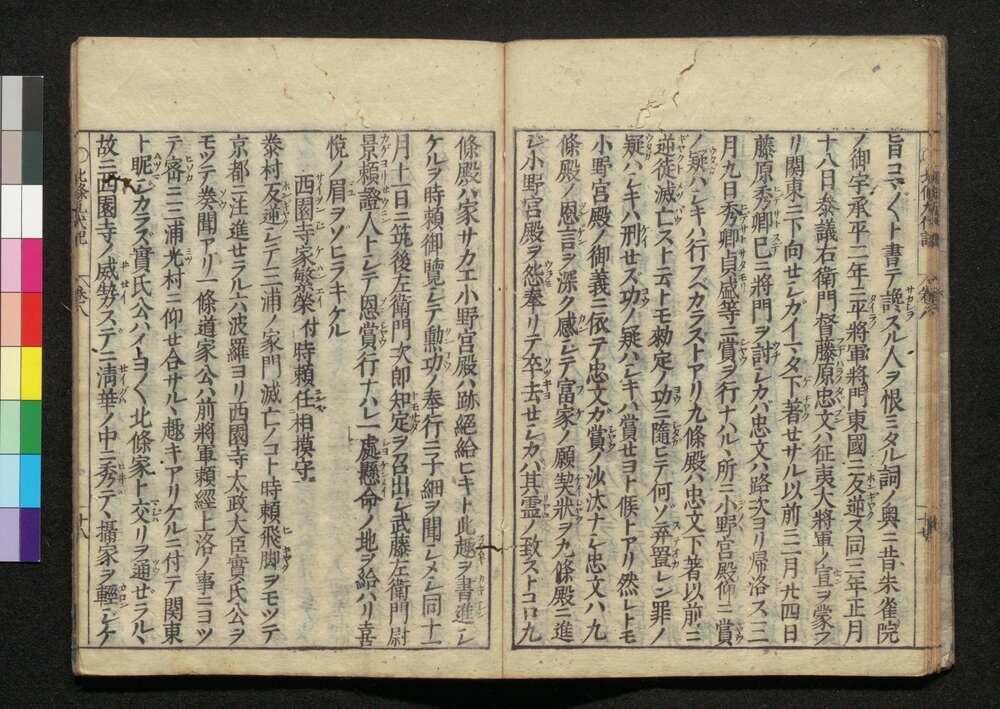 旨コマ〴〵ト書テ讒スル人ヲ恨ミタル詞ノ奥ニ昔朱雀院
ノ御宇承平二年ニ平將軍將門東國ニ反逆ス同三年正月
十八日參議右衛門督藤原忠文ハ征夷大將軍ノ宣ヲ蒙ツ
リ関東ニ下向セシガイマダ下著セサル以前ニ二月廿四日
藤原秀卿已ニ將門ヲ討シカバ忠文ハ路次ヨリ帰洛ス三
月九日秀卿貞盛等ニ賞ヲ行ナハル所ニ小野宮殿仰ニ賞
ノ疑ハシキハ行スベカラストアリ九條殿ハ忠文下著以前ニ
逆徒滅亡スト云トモ勅定ノ功ニ隨ヒテ何ソ弃置レン罪ノ
疑ハシキハ刑セス功ノ疑ハシキハ賞セヨト候トアリ然レトモ
小野宮殿ノ御義ニ依テ忠文ガ賞ノ沙汰ナシ忠文ハ九
條殿ノ恩言ヲ深ク感シテ富家ノ願契狀ヲ九條殿ニ進
シ小野宮殿ヲ怨奉リテ卒去セシカバ其霊ノ致ストコロ九
條殿ハ家サカエ小野宮殿ハ跡絶給ヒキト此趣ヲ書進シ
ケルヲ時頼御覽シテ勲功ノ奉行ニ子細ヲ聞シメシ同十一
月十一日ニ筑後左衛門次郎知定ヲ召出シ武藤左衛門尉
景頼證人トシテ恩賞行ナハレ一處懸命ノ地ヲ給ハリ喜
悦ノ眉ヲゾヒラキケル
西園寺家繁榮付時頼任相摸守
泰村反逆シテ三浦ノ家門滅亡ノコト時頼飛脚ヲモツテ
京都ニ注進セラル六波羅ヨリ西園寺太政大臣實氏公ヲ
モツテ奏聞アリ一條道家公ハ前將軍頼經上洛ノ事ニヨツ
テ密ニ三浦光村ニ仰セ合サルヽ趣キアリケルニ付テ関東
ト昵シカラズ實氏公ハイヨ〳〵北條家ト交リヲ通セラルヽ
故ニ西園寺ノ威勢ステニ清華ノ中ニ秀テヽ攝家ヲ輕シケ